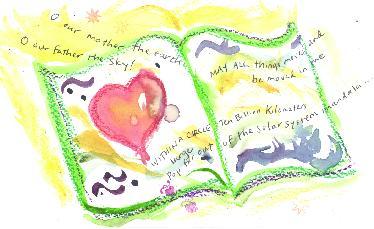 O our mother the earth
O our father the sky!
MAY ALL things move and
be moved in me
WITHIN A CIRCLE Ten Billion Kilometers
Large
Pop far out of the solar system mandala...